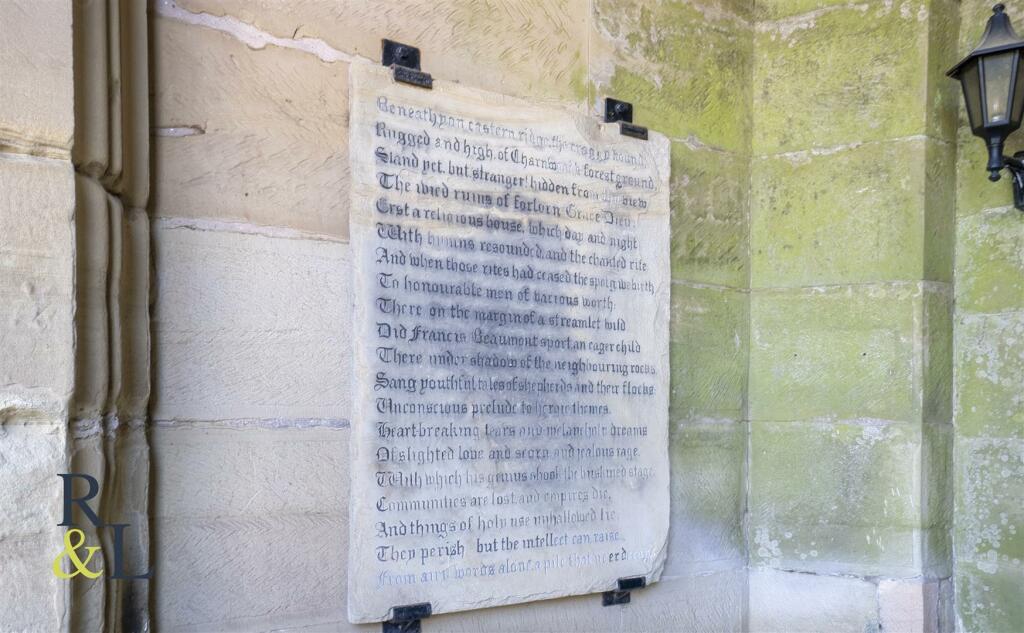 Beneath yon eastern ridge, the craggy bound,
Rugged and high, of Charnwood's forest ground,
Stand yet, but stranger! hidden from thy view
The ivied ruins of forlorn Grace Dieu;
Erst a religious house, which day and night
With hymns resounded, and the chanted rite
And when those rites had ceased the spot gave birth
To honourable men of various worth
There on the margin of a streamlet wild
Did Francis Beaumont sport, an eager child
There under shadow of the neighbouring rocks
Sang youthful tales of shepherds and their flocks
Unconscious prelude to heroic themes,
Heart-breaking tears and melancholy dreams
Of slighted love and scorn and jealous rage,
With which his genius shook the buskined stage.
Communities are lost and empires die,
And things of holy use unhallowed lie
They perish but the intellect can raise
From airy words alone, a pile that ne'er
R
& L